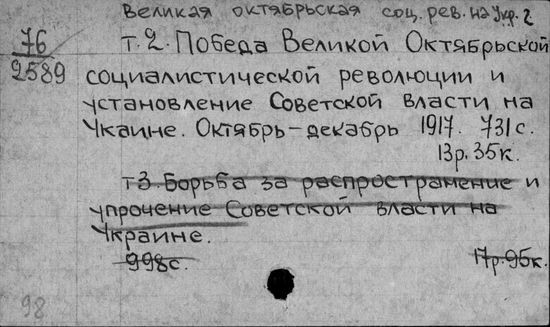 великая октябрьская соц. рев. на Укр. 2
76
2589
т. 2. Победа Великой Октябрьской
социалистической революции и
установление Советской власти на
Украине. Октябрь-декабрь 1917. 731с.
13р. 35к.
т3 Борьба за распространение и
упрочение Советской власти на
Украине.
998с. 17р. 95к.
98